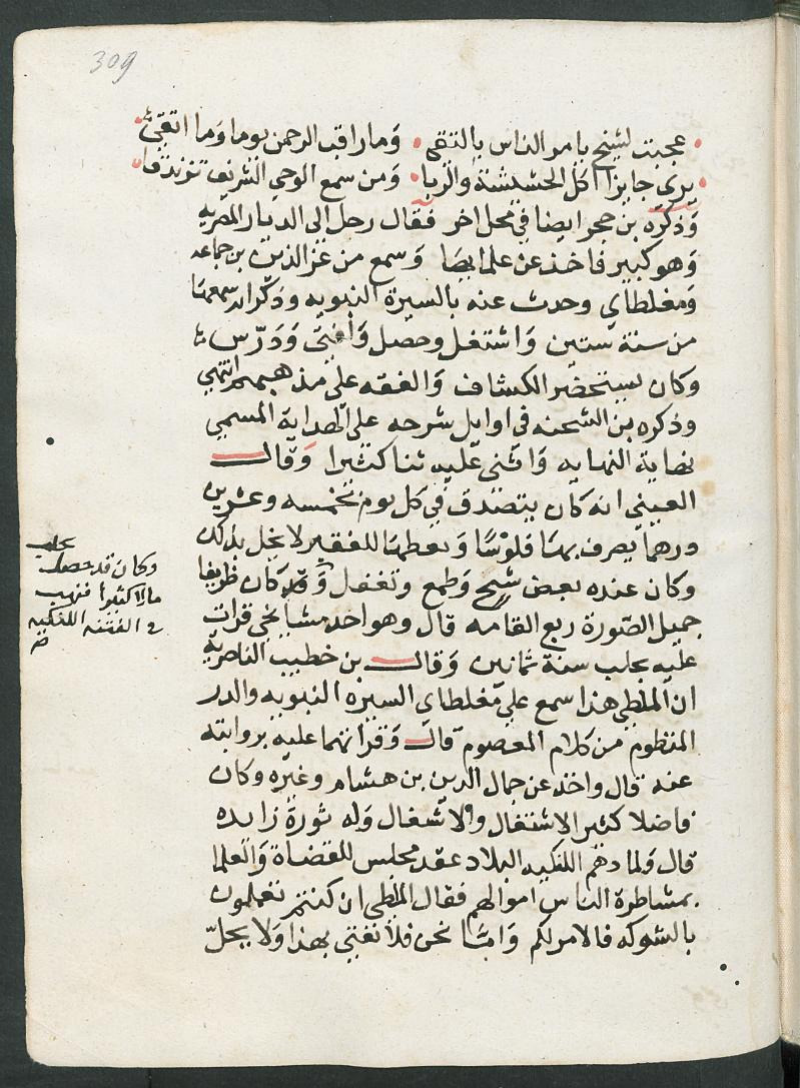 309
عجبت لشيخ يامر الناس بالتقى وما راقب الرحمن يوما وما اتقى
يرى جايزا اكل الحشيشة والربا ومن سمع الوحي الشريف تزندقا
وذكره بن حجر ايضا في محل اخر فقال رحل الى الديار المصريه
وهو كبير فاخذ عن علمايها وسمع من عز الدين بن جماعه
ومغلطاي وحدث عنه بالسيرة النبويه وذكر انه سمعها
من سنة ستين واشتغل وحصل وافتى ودرس
وكان يستحضر الكشاف والفقه على مذهبهم انتهي
وذكره بن الشحنه في اوايل شرحه على الهداية المسمي
نهاية النهايه واثنى عليه ثنا كثيرا وقال
العيني انه كان يتصدق في كل يوم بخمسه وعشرين
درهما يصرف بها فلوسا ويعطيها للفقير لا يخل بذلك
وكان عنده بعض شح وطمع وتغفل وقد كان ظريفا
جميل الصورة ربع القامه قال وهو احد مشايخي قرات
عليه بحلب سنة ثمانين وقال بن خطيب الناصرية
ان الملطي هذا سمع علي مغلطاي السيرة النبويه والدر
المنظوم من كلام المعصوم قال وقراتهما عليه بروايته
عنه قال واخذ عن جمال الدين بن هشام وغيره وكان
فاضلا كثير الاشتغال والاشغال وله ثورة زايده
قال ولما دهم اللنكيه البلاد عقد مجلس للقضاة والعلما
بمشاطرة الناس اموالهم فقال الملطي ان كنتم تعملون
بالشوكه فالامر لكم وامّا نحن فلا نفتي بهذا ولا يحلّ
بحلب
وكان قد حصل
مالا كثيرا فنهب
في الفتنه اللنكيه